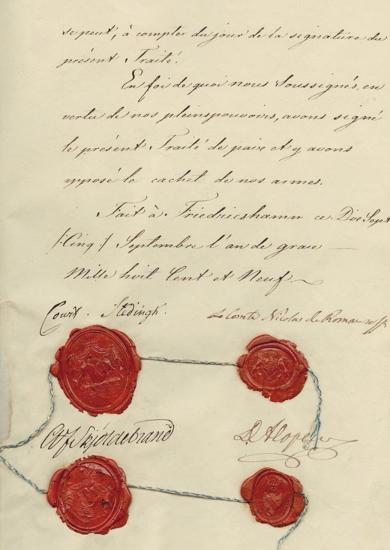 se peut, à compter du jour de la signature du
présent Traité.
En foi de quoi nous Soussignés, en
vertu de nos pleinspouvoirs, avons signé
le présent Traité de paix et y avons
apposé le cachet de nos armes.
Fait à Friedricshamm ce Dix Sept
/:Cinq:/ Septembre l'an de grace
Mille huit Cent et Neuf.
Court. Stedingk.
Le Comte Nicolas de Romanzoff
Skjöldebrand
D'Alopeus